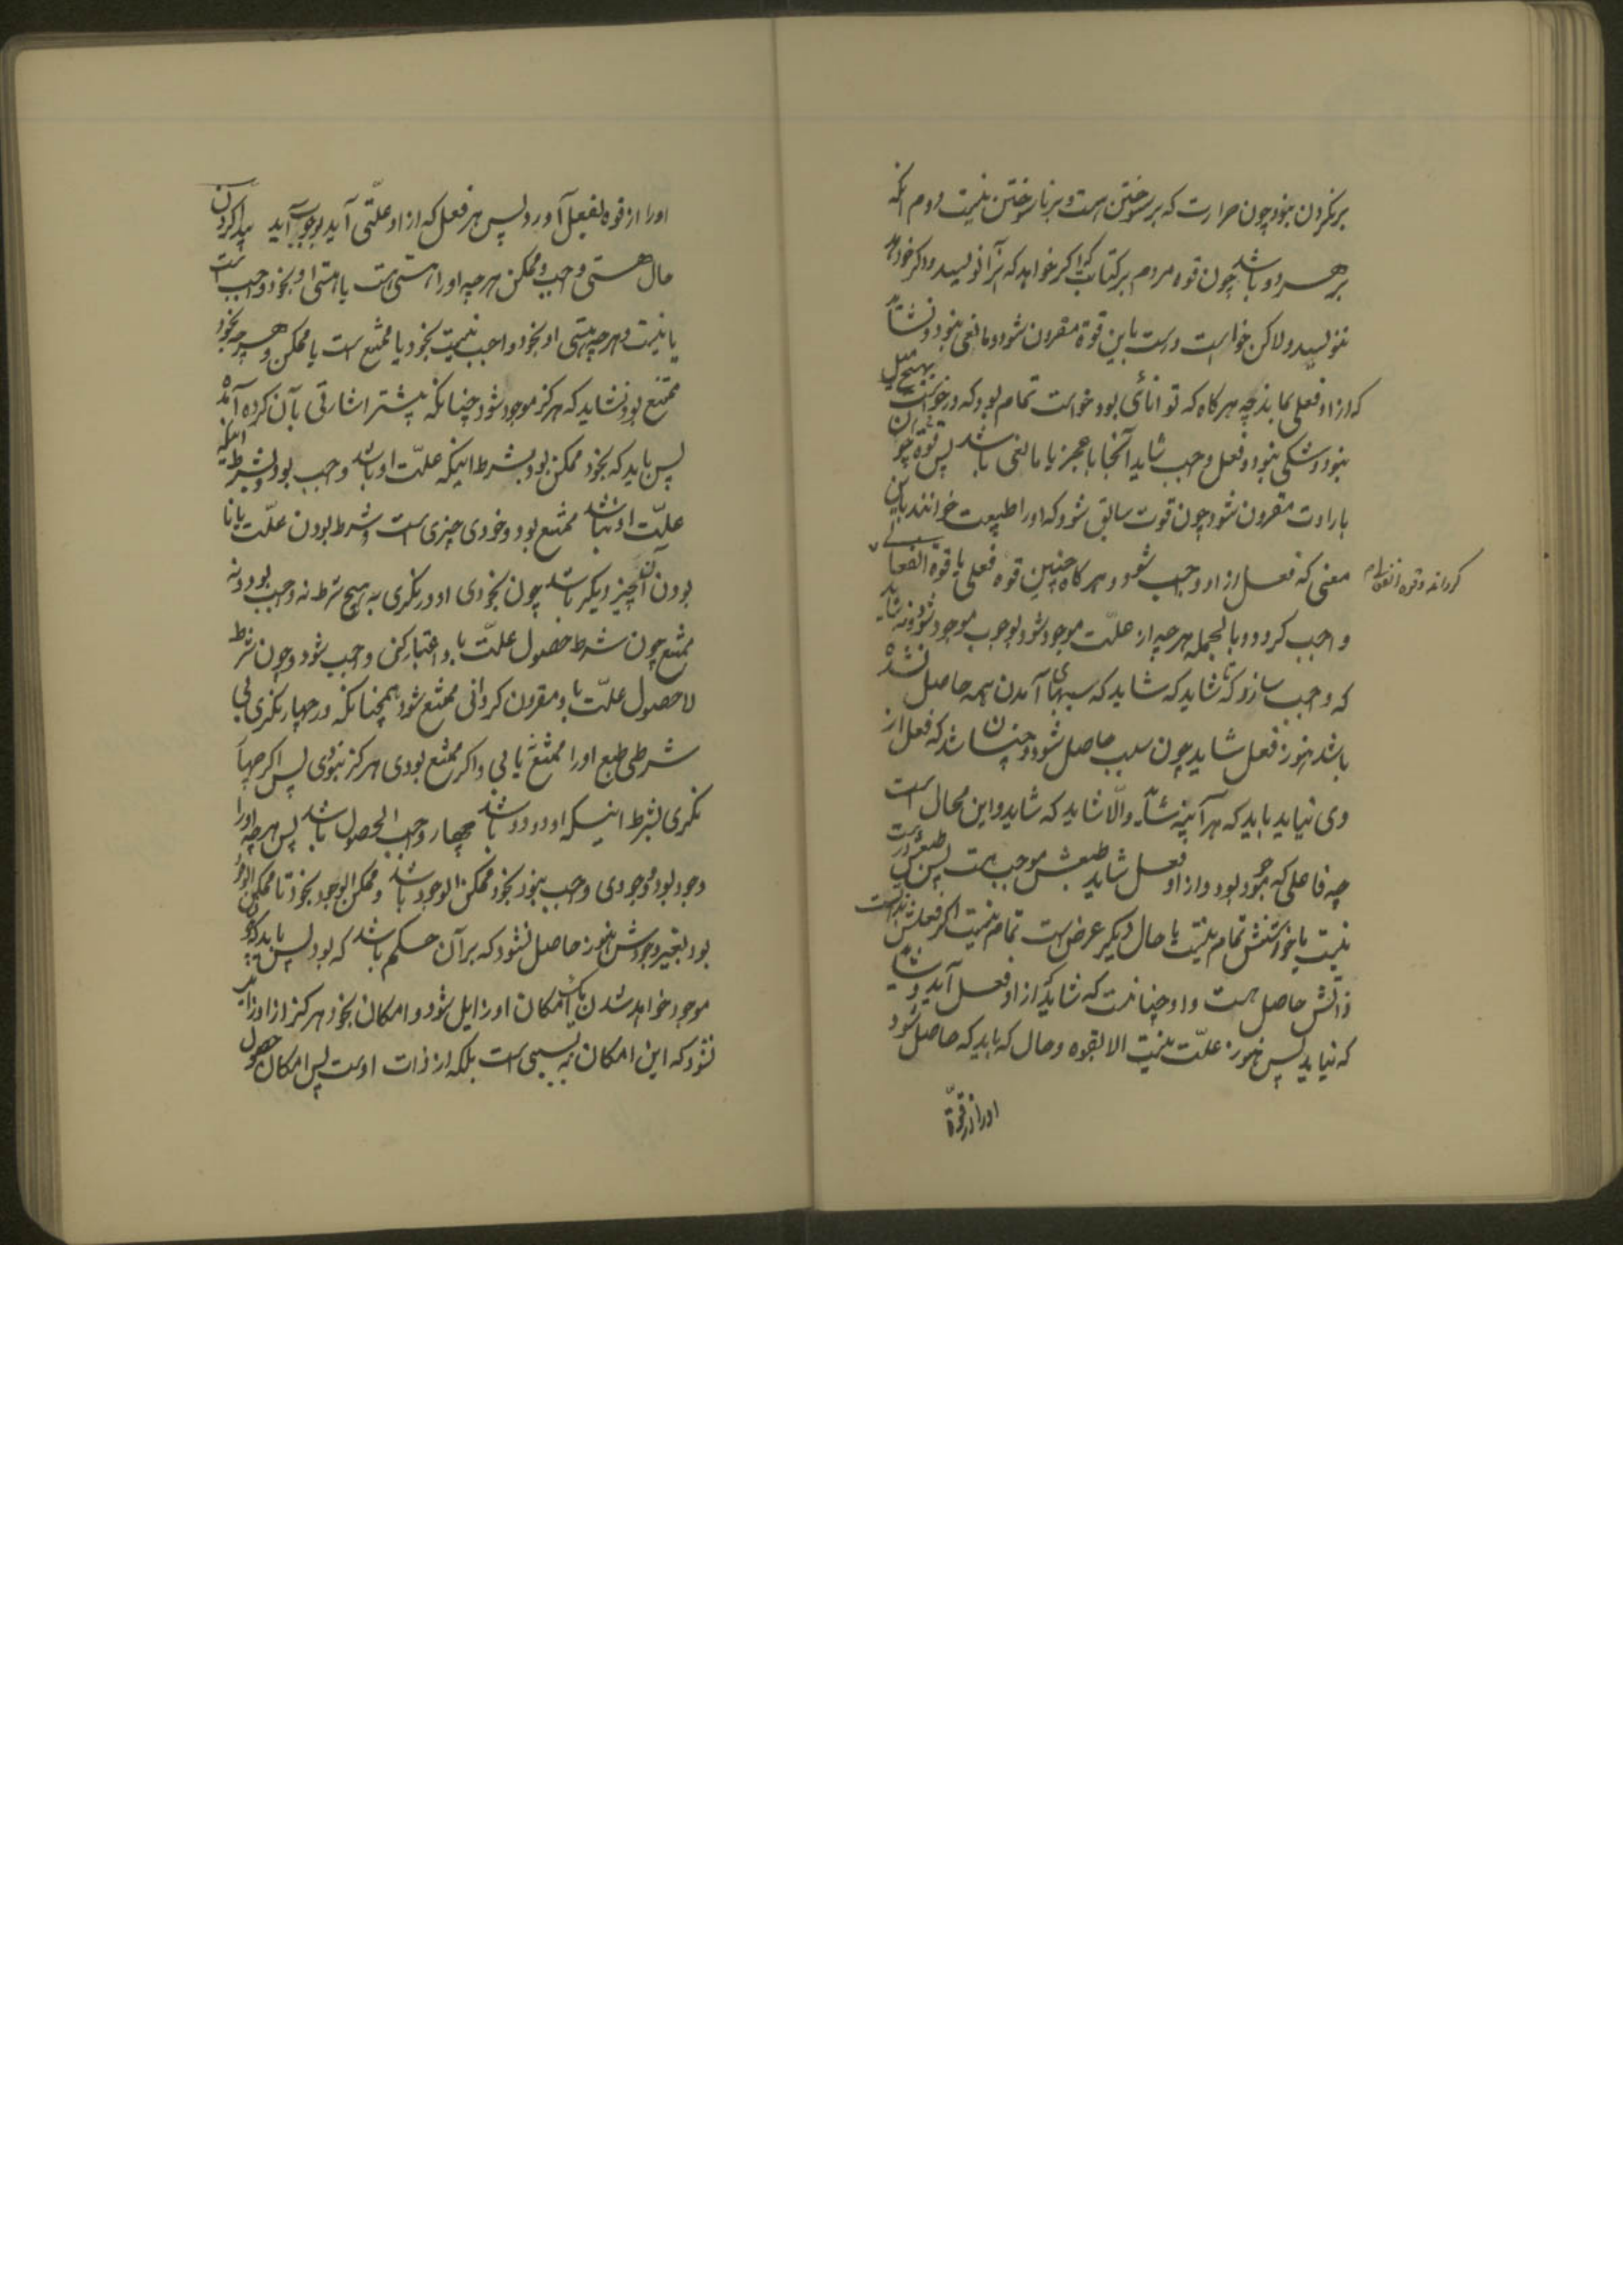 برنکردن نبود چون حرارت که بر سوختن است و بر ناسوختن نیست دوم انکه
بر هر دو باشد چون قوه مردم بر کتابت که اکر خواهد که نویسد و اکر خواهد
ننویسد ولاکن خواست درست باین قوة مقرون شود و مانعی نبود و نشاید
که از او فعلی نیاید چه هرکاه که توانائی بود و خواست تمام بود که در خواست بهیچ میل
نبود و شکی نبود و فعل واجب شاید آنجا با عجز یا مانعی باشد پس قوه چون
بارادت مقرون شود چون قوت سابق شود که او را طبیعت خوانند باین
معنی که فعل از او واجب شود و هرکاه چنین قوه فعلی با قوة انفعالی
کرد اند و قوه انفعالی هم
واجب کردد و بالجمله هرچه از علّت موجود شود بوجوب موجود شود و نشاید
که واجب سازد که تا شاید که شاید که سببهای آمدن همه حاصل نشده
باشد هنوز فعل شاید چون سبب حاصل شود و چنان باشد که فعل از
وی نیاید باید که هر آینه نشاید و الّا شاید که شاید و این محال است
چه فاعلی که موجود بود و از او فعل شاید طبعش موجب است پس طبعش درست
نیست یا خواستش تمام نیست یا حال دیکر عرض است تمام نیست اکر فعلش
ذاتش حاصل است و او چنانست که شاید که از او فعل آید و شاید
که نیاید پس هنوز علّت نیست الا بقوه و حال که باید که حاصل شود
او را از قوّة
او را از قوه بفعل آورد پس هر فعل که از او علّتی آید بوجوب آید پیدا کردن
حال هستی واجب و ممکن هرچه او را هستی است یا هستی او بخود واجب است
یا نیست و هرچه هستی او بخود واجب نیست بخود یا ممتنع است یا ممکن و هرچه بخود
ممتنع بود نشاید که هرکز موجود شود چنانکه پیشتر اشارتی بآن کرده آمد
پس باید که بخود ممکن بود و بشرط اینکه علّت او باشد واجب بود و بشرط اینکه
علّت او نباشد ممتنع بود و خودی چیزی است و شرط بودن علّت یا نا
بودن آن چیز دیکر باشد چون بخودی او در نکری به هیچ شرط نه واجب بود و نه
ممتنع چون شرط حصول علّت با او اعتبار کنی واجب شود و چون شرط
لا حصول علّت با او مقرون کردانی ممتنع شود همچنانکه در چهار نکری بی
شرطی طبع او را ممتنع نیابی و اکر ممتنع بودی هرکز نبودی پس اکر چهار
نکری بشرط اینکه او دو دو باشد چهار واجب الحصول باشد پس هرچه او را
وجود بود و وجودی واجب نبود بخود ممکن الوجود باشد و ممکن الوجود بخود تا ممکن الوجود
بود بغیر وجودش هنوز حاصل نشود که بر آن حکم باشد که بود پس باید که چون
موجود خواهد شدن آن امکان او زایل شود و امکان بخود هرکز از او زایل
نشود که این امکان نه بسببی است بلکه از ذات اوست پس امکان حصول